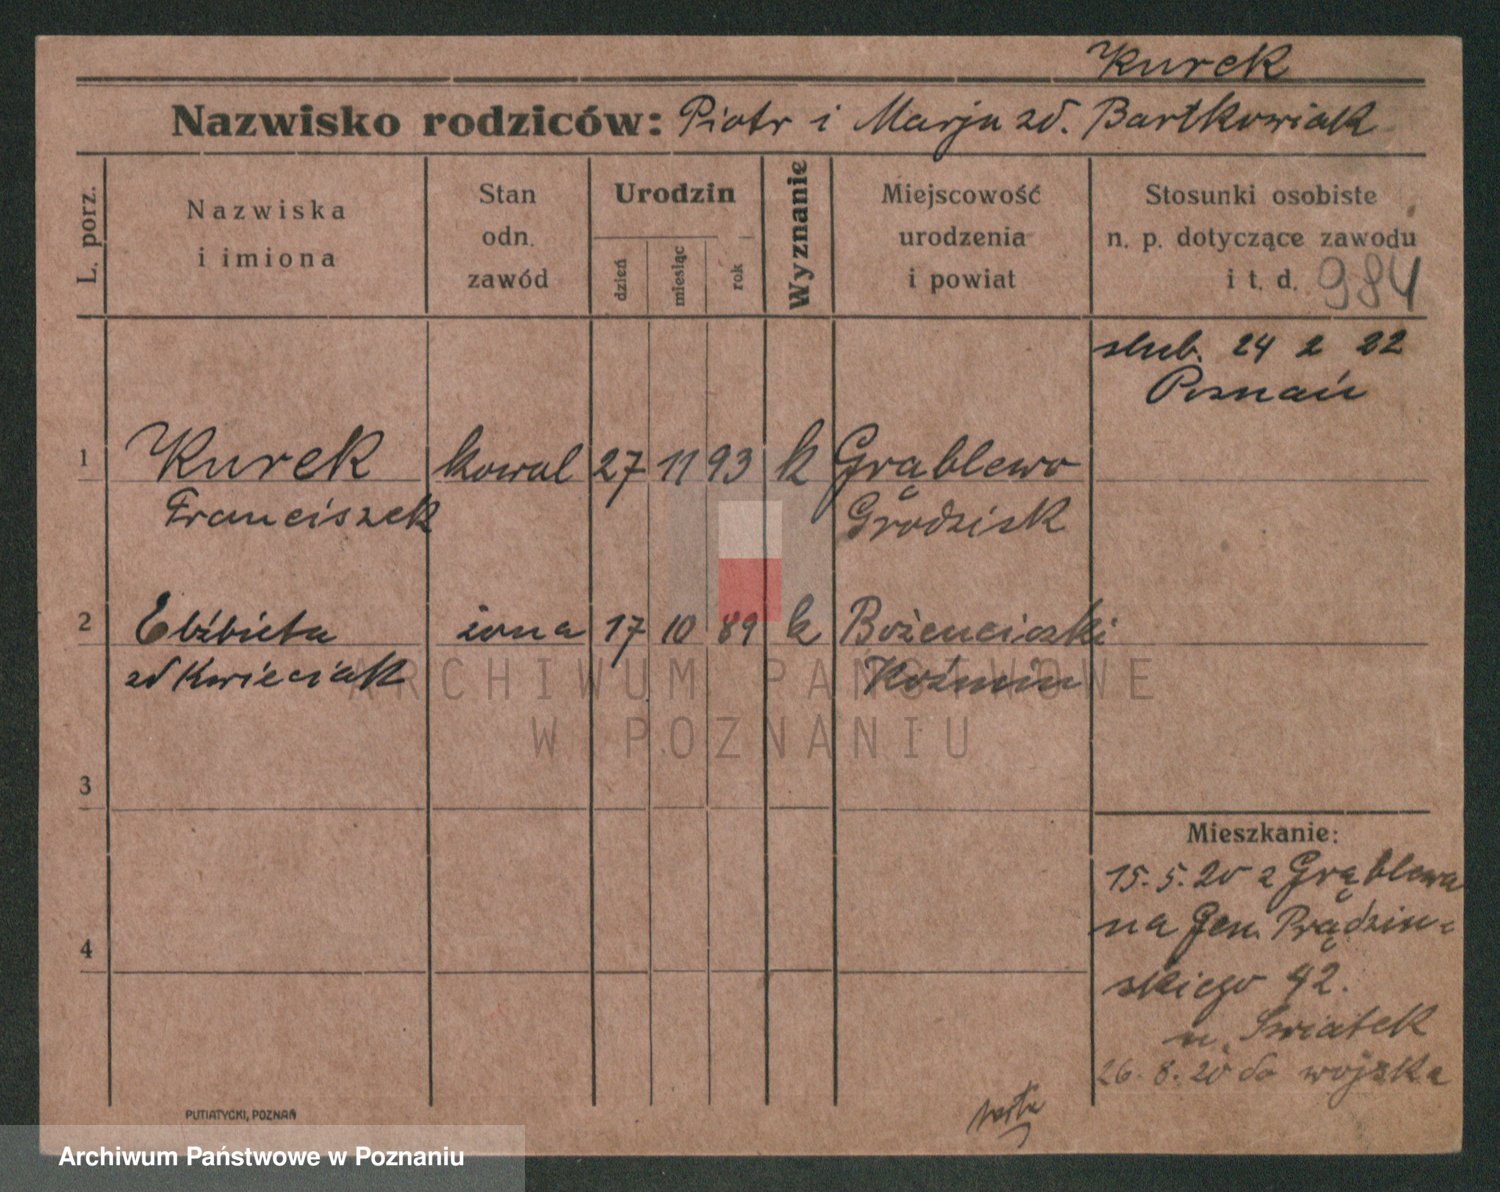 Kurek
Nazwisko rodziców: Piotr i Marja zd. Bartkowiak
L. porz.
Nazwiska
i imiona
Stan
odn.
zawód
Urodzin
dzień
miesiąc
rok
Wyznanie
Miejscowość
urodzenia
i powiat
Stosunki osobiste
n. p. dotyczące zawodu
i t. d. 984
slub. 24 2 22
Poznań
1 Kurek kowal 27 11 93 k Grąblewo
Franciszek Grodzisk
2 Elżbieta żona 17 10 89 k
zd Kwieciak Koźmin
3
Mieszkanie:
15.5.20 z Grąblewa
4
na Gen. Prądzin-
skiego 42.
u. Swiatek
26.8.20 do wojska
PUTIATYCKI, POZNAŃ
ARCHIWUM PAŃSTWOWE
W POZNANIU
Archiwum Państwowe w Poznaniu